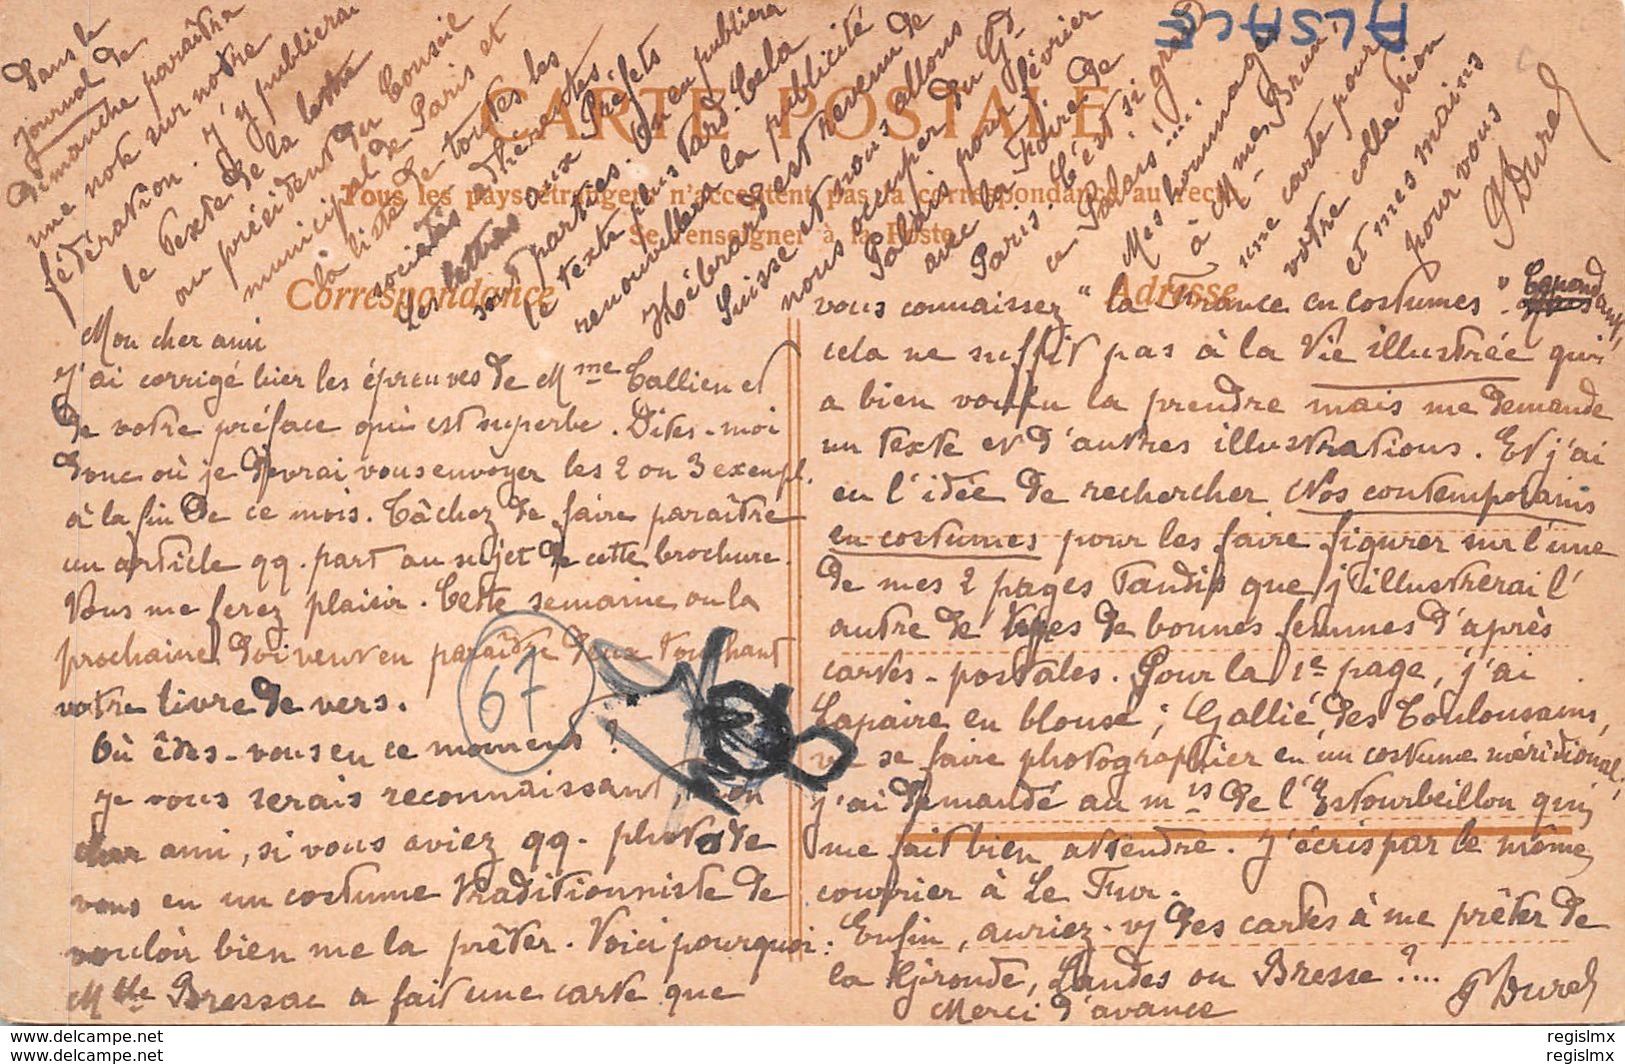 ALSACE
CARTE POSTALE
Tous les pays étrangers n'acceptent pas la correspondance au recto
Se renseigner à la Poste
Correspondance
Adresse
Mon cher ami
J'ai corrigé hier les épreuves de Mme Tallien et
de votre préface qui est superbe. Dites-moi
donc où je devrai vous envoyer les 2 ou 3 exempl.
à la fin de ce mois. Tâchez de faire paraître
un article qq. part au sujet de cette brochure.
Vous me ferez plaisir. Cette semaine ou la
prochaine doivent en paraître deux touchant
votre livre de vers.
Où êtes-vous en ce moment ?
67
Je vous serais reconnaissant, mon
cher ami, si vous aviez qq. photo de
vous en un costume traditionniste de
vouloir bien me la prêter. Voici pourquoi :
Mlle Bressac a fait une carte que
vous connaissez "la France en costumes". Cependant,
cela ne suffit pas à la Vie illustrée qui
a bien voulu la prendre mais me demande
un texte et d'autres illustrations. Et j'ai
eu l'idée de rechercher Nos contemporains
en costumes pour les faire figurer sur l'une
de mes 2 pages tandis que j'illustrerai l'
autre de types de bonnes femmes d'après
cartes-postales. Pour la 1e page, j'ai
Lapaire en blouse ; Gallié des Toulousains,
va se faire photographier en un costume méridional ;
j'ai demandé au mis de l'Estourbeillon qui
me fait bien attendre. J'écris par le même
courrier à Le Fur.
Enfin, auriez-vs des cartes à me prêter de
la Gironde, Landes ou Bresse ?...
Merci d'avance
G Durel
Dans le
Journal de
Dimanche paraîtra
une note sur notre
fédération. J'y publierai
le texte de la lettre
au président du Conseil
municipal de Paris et
la liste de toutes les
sociétés adhérentes
Les lettres aux Préfets
sont parties. On en publiera
le texte plus tard. Cela
renouvellera la publicité
Hébrard est revenu de
Suisse et nous allons
nous occuper du Gd
Palais pour février
avec la Foire de
Paris. C'est si grand
ce Palais !....
Mes hommages
à Mmes Brun,
une carte pour
votre collection
et mes mains
pour vous
G Durel
regislmx
regislmx